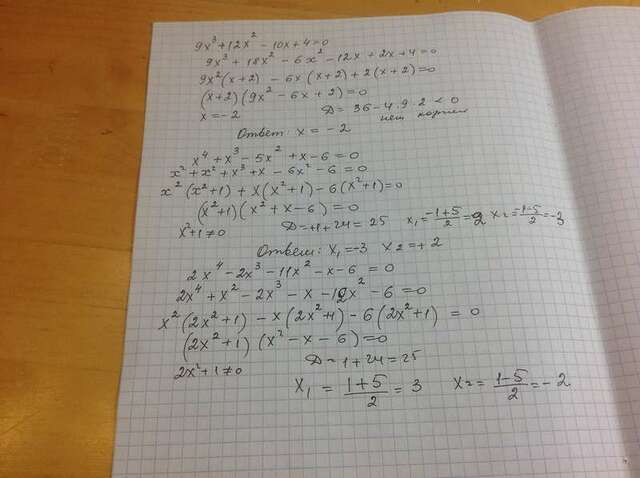 9x³ + 12x² - 10x + 4 = 0
9x³ + 18x² - 6x² - 12x + 2x + 4 = 0
9x² (x+2) - 6x (x+2) + 2 (x+2) = 0
(x+2) (9x² - 6x + 2) = 0
x = -2 D = 36 - 4·9·2 < 0
нет корней
Ответ x = -2
x⁴ + x³ - 5x² + x - 6 = 0
x² + x² + x³ + x - 6x² - 6 = 0
x² (x²+1) + x (x²+1) - 6 (x²+1) = 0
(x²+1) (x² + x - 6) = 0
x²+1 ≠ 0 D = +1 + 24 = 25 x₁ = (-1+5)/2 = 2 x₂ = (-1-5)/2 = -3
Ответ: x₁ = -3 x₂ = +2
2x⁴ - 2x³ - 11x² - x - 6 = 0
2x⁴ + x² - 2x³ - x - 12x² - 6 = 0
x² (2x²+1) - x (2x²+1) - 6 (2x²+1) = 0
(2x²+1) (x² - x - 6) = 0
2x²+1 ≠ 0 D = 1 + 24 = 25
x₁ = (1+5)/2 = 3 x₂ = (1-5)/2 = -2